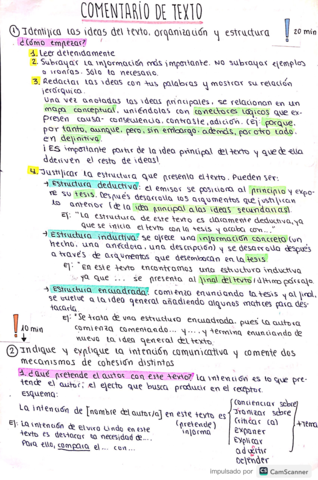 COMENTARIO DE TEXTO
① Identifica las ideas del texto, organización y estructura ! 20 min
¿Cómo empezar?
1. Leer detenidamente
2. Subrayar la información más importante. No subrayar ejemplos
o ironías. Solo lo necesario.
3. Redactar las ideas con tus palabras y mostrar su relación
jerárquica.
Una vez anotadas las ideas principales, se relacionan en un
mapa conceptual, uniéndolas con conectores lógicos que ex-
presen causa-consecuencia, contraste, adición. (Ej: porque,
por tanto, aunque, pero, sin embargo, además, por otro lado,
en definitiva)
¡Es importante partir de la idea principal del texto y que de ella
deriven el resto de ideas!
4. Justificar la estructura que presenta el texto. Pueden ser:
→ Estructura deductiva: el emisor se posiciona al principio y expo-
ne su tesis. Después desarrolla los argumentos que justifican
lo anterior (de la idea principal a las ideas secundarias).
ej: "La estructura de este texto es claramente deductiva, ya
que se inicia el texto con la tesis y acaba con..."
→ Estructura inductiva: se ofrece una información concreta (un
hecho, una anécdota, una descripción) y se desarrolla después
a través de argumentos que desembocan en la tesis.
ej: "en este texto encontramos una estructura inductiva
ya que ... se presenta al final del texto / último párrafo
→ Estructura encuadrada: comienza enunciando la tesis y al final,
se vuelve a la idea general añadiendo algunos matices para des-
tacarla.
ej: "Se trata de una estructura encuadrada, pues la autora
comienza comentando... y ... y termina enunciando de
nuevo la idea general del texto.
! 10 min
② Indique y explique la intención comunicativa y comente dos
mecanismos de cohesión distintos
1. ¿Qué pretende el autor con este texto? La intención es lo que pre-
tende el autor; el efecto que busca producir en el receptor.
esquema:
La intención de [nombre del autor/a] en este texto es
(pretende)
concienciar sobre
ironizar sobre
criticar (a)
exponer
explicar
advertir
defender
+ tema
Ej: La intención de Elvira Lindo en este informa
texto es destacar la necesidad de...
Para ello, compara el ... con ...
impulsado por CS CamScanner